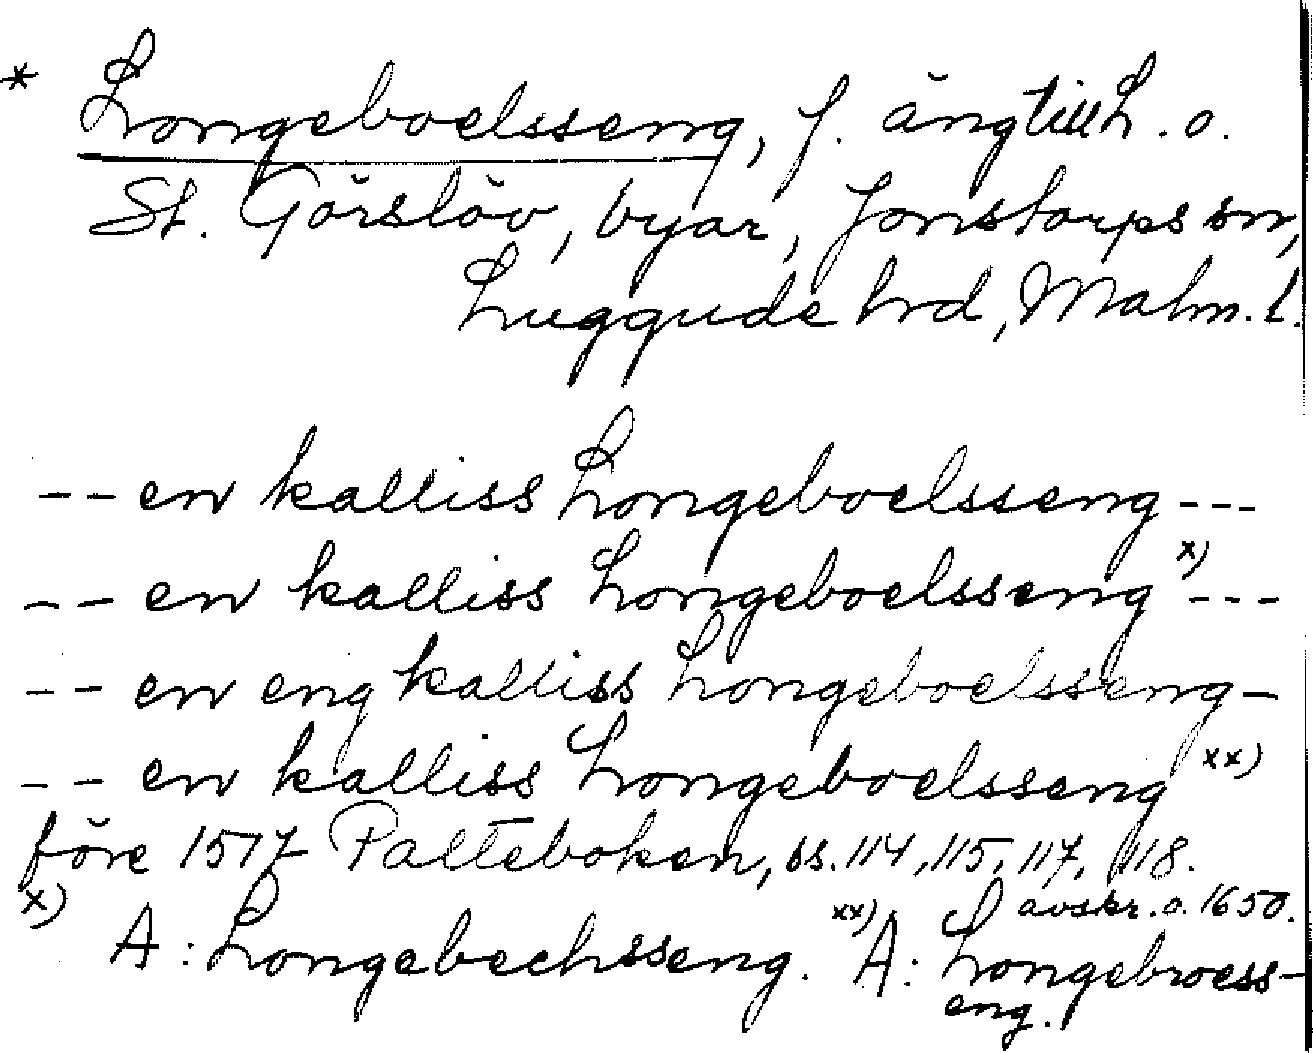 * Longeboelsseng, f. äng till L. o.
St. Görslöv, byar, Jonstorps sn,
Luggude hrd, Malm. l.
-- en kalliss Longeboelsseng ---
-- en kalliss Longeboelsseng x) ---
-- en eng kalliss Longeboelsseng -
-- en kalliss Longeboelsseng xx)
före 1517 Palteboken, ss. 114, 115, 117, 118.
avskr. o. 1650.
x) A: Longebechsseng. xx) A: Longebroess-
eng.